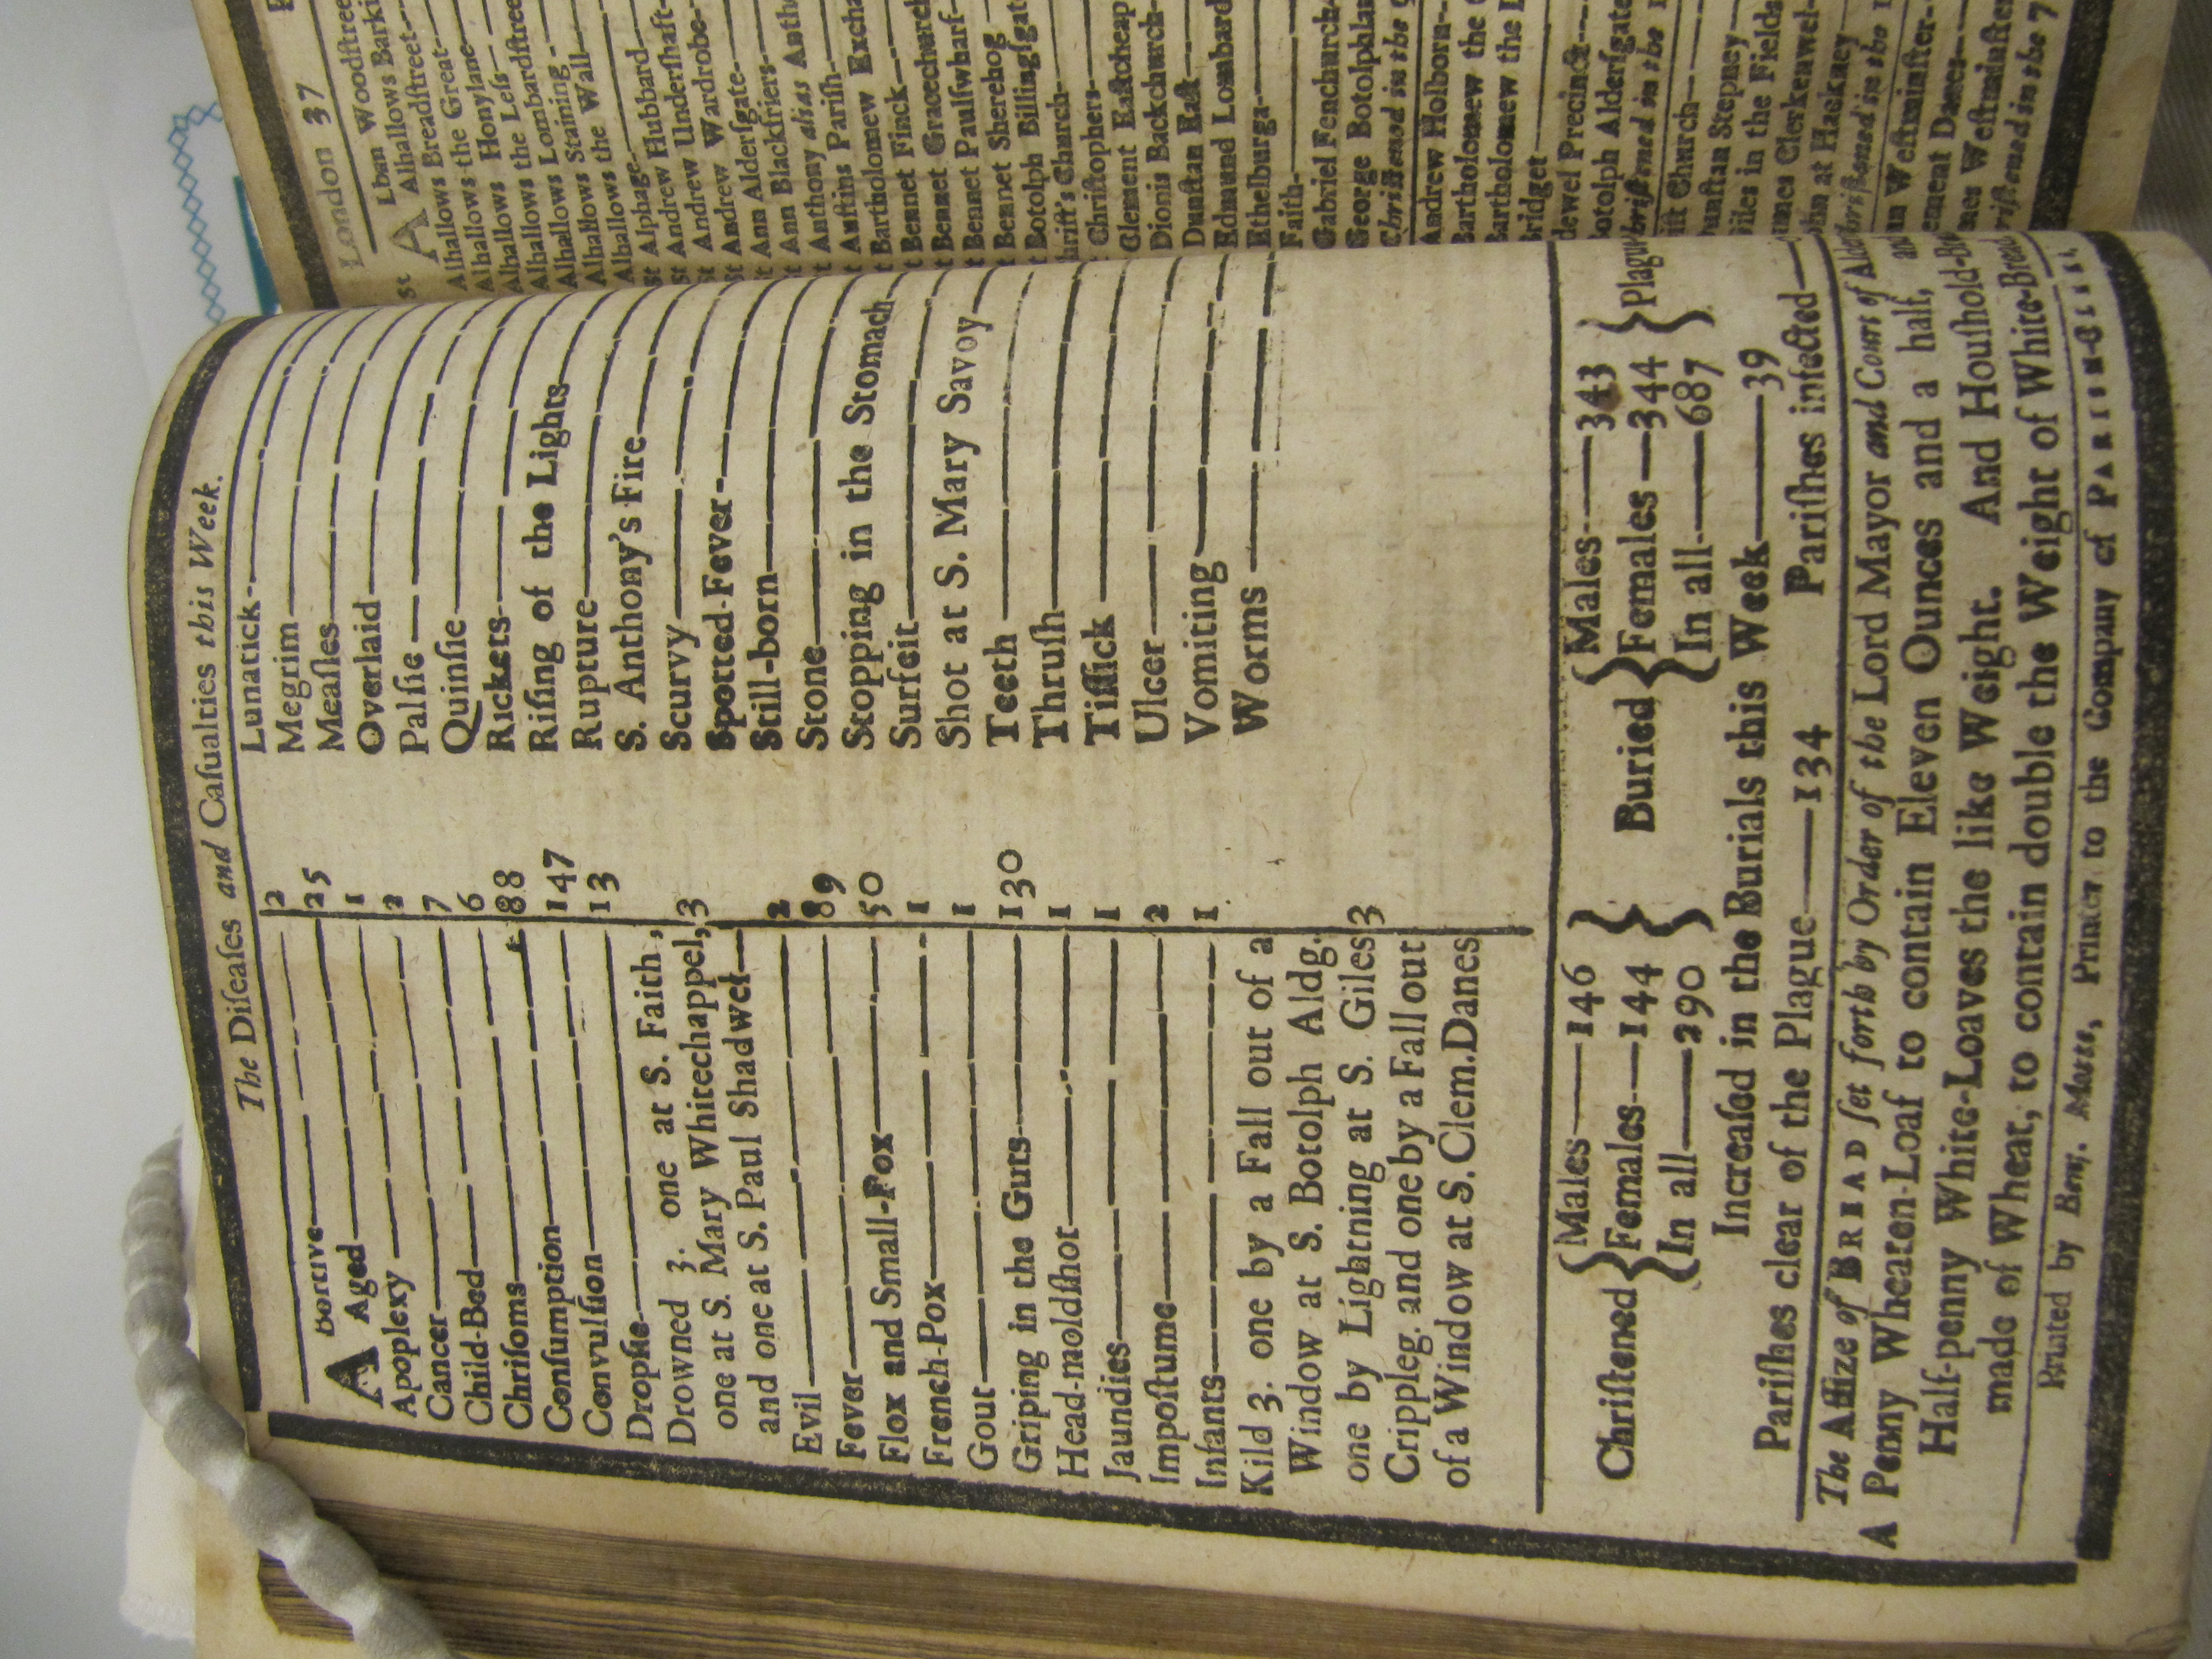 The Diſeaſes and Caſualties this Week.
Abortive 2
Aged 25
Apoplexy 1
Cancer 2
Child-Bed 7
Chriſoms 6
Conſumption 88
Convulſion 147
Dropſie 13
Drowned 3. one at S. Faith,
one at S. Mary Whitechappel, 3
and one at S. Paul Shadwel
Evil 2
Fever 89
Flox and Small-Pox 50
French-Pox 1
Gout 1
Griping in the Guts 130
Head-moldſhot 1
Jaundies 1
Impoſtume 2
Infants 1
Kild 3. one by a Fall out of a
Window at S. Botolph Aldg.
one by Lightning at S. Giles 3
Crippleg. and one by a Fall out
of a Window at S. Clem. Danes
Lunatick
Megrim
Meaſles
Overlaid
Palſie
Quinſie
Rickets
Riſing of the Lights
Rupture
S. Anthony's Fire
Scurvy
Spotted-Fever
Still-born
Stone
Stopping in the Stomach
Surfeit
Shot at S. Mary Savoy
Teeth
Thruſh
Tiſſick
Ulcer
Vomiting
Worms
Chriſtened
Males 146
Females 144
In all 290
Buried
Males 343
Females 344
In all 687
Plague
Increaſed in the Burials this Week 39
Pariſhes clear of the Plague 134 Pariſhes infected
The Aſſize of BREAD ſet forth by Order of the Lord Mayor and Court of
A Penny Wheaten-Loaf to contain Eleven Ounces and a half, and
Half-penny White-Loaves the like Weight. And Houſhold-
made of Wheat, to contain double the Weight of White-
Printed by Benj. Motte, Printer to the Company of PARISH-
London 37
St Alban Woodſtree
Alhallows Barki
Alhallows Breadſtreet
Alhallows the Great
Alhallows Honylane
Alhallows the Leſs
Alhallows Lombardſtree
Alhallows Staining
Alhallows the Wall
St Alphage
St Andrew Hubbard
St Andrew Underſhaft
St Andrew Wardrobe
St Ann Alderſgate
St Ann Blackfriers
t Anthony alias Anth
t Auſtins Pariſh
t Bartholomew Excha
t Bennet Finck
t Bennet Gracechurch
t Bennet Paulſwharf
t Bennet Sherehog
t Botolph Billingſgat
hriſt's Church
Chriſtophers
Clement Eaſtcheap
Dionis Backchurch
Dunſtan Eaſt
Edmund Lombard
Ethelburga
Faith
Gabriel Fenchurch
George Botolphlan
Chriſtened in the 9
Andrew Holborn
Bartholomew the G
Bartholomew the L
ridget
dewel Precinct
otolph Alderſgate
hriſtned in the 1
iſt Church
unſtan Stepney
iles in the Fields
ames Clerkenwel
ohn at Hackney
hriſtened in the 1
an Weſtminſter
ement Danes
mes Weſtminſter
riſtened in the 7